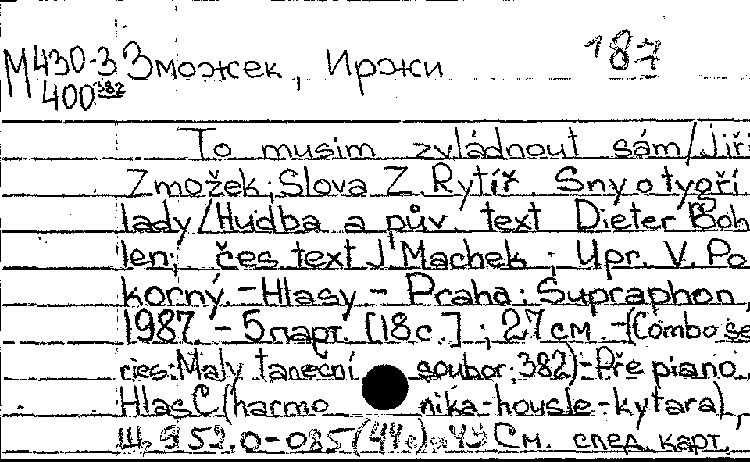 М430-3 Зможек, Иржи 187
400 382
To musim zvládnout sám/Jiří
Zmožek; Slova Z. Rytíř. Sny o tygří
lady/Hudba a pův. text Dieter Boh
len; čes text J Machek; Upr. V. Po
korný. - Hlasy - Praha: Supraphon,
1987. - 5 парт. [18с.]; 27 см. - (Combo se
ries: Maly taneční soubor; 382) - Pře piano,
Hlas C (harmo nika-housle-kytara),
См. след карт.